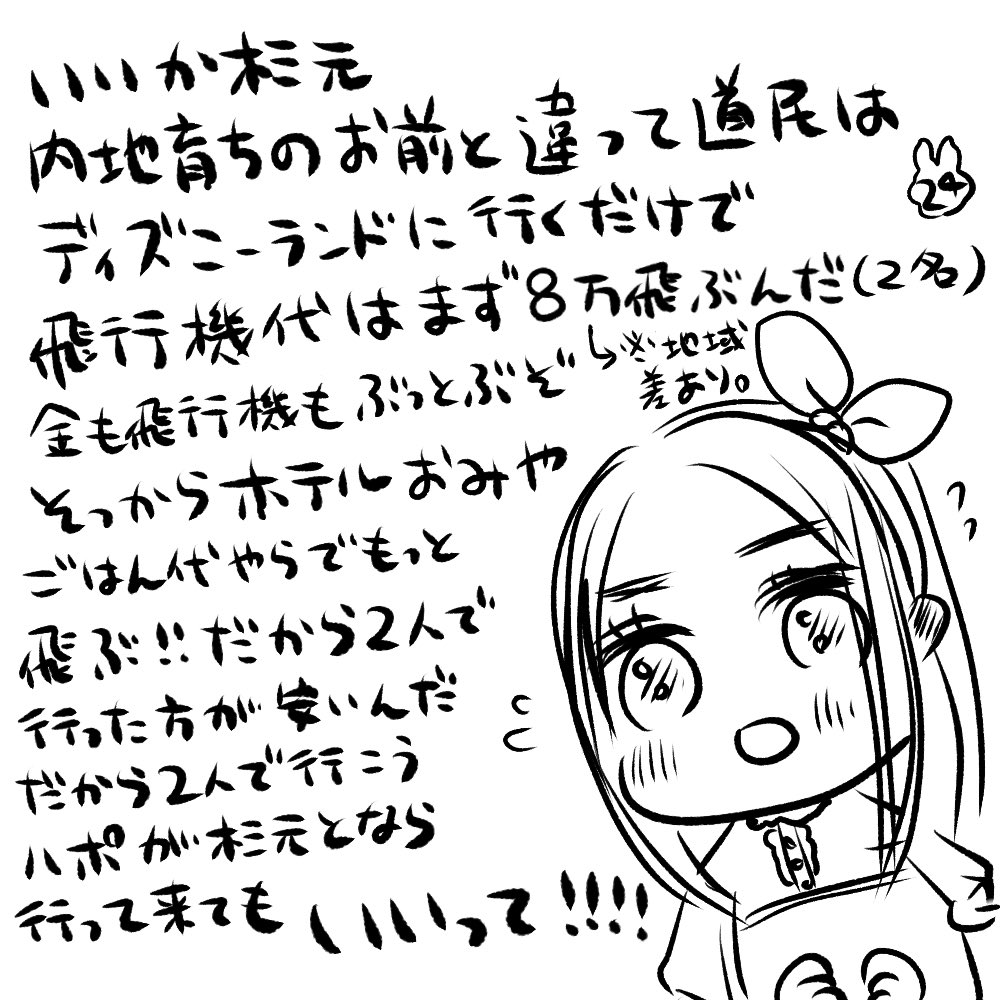 いいか杉元
内地育ちのお前と違って道民は
24
ディズニーランドに行くだけで
飛行機代はまず8万飛ぶんだ(2名)
※地域
差あり。
金も飛行機もぶっとぶぞ
そっからホテルおみや
ごはん代やらでもっと
飛ぶ!!だから2人で
行った方が安いんだ
だから2人で行こう
ハポが杉元となら
行って来てもいいって!!!!